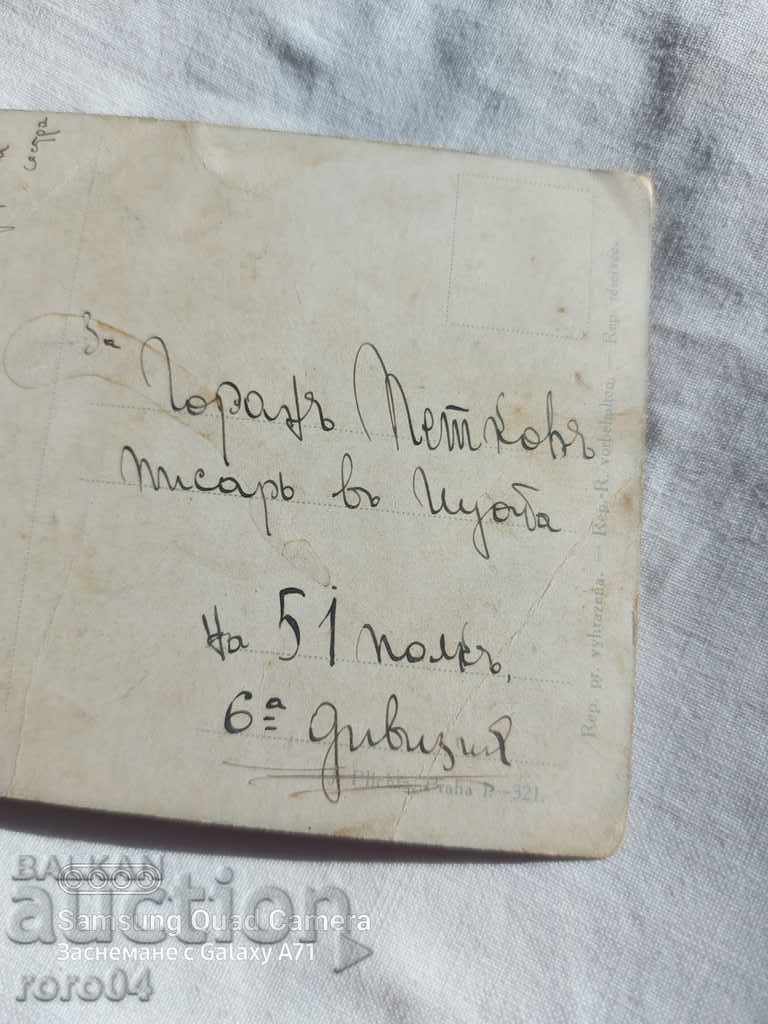 сестра
За Горанъ Петковъ
писарь въ Щаба
на 51 полкъ,
6а дивизия
Rep. pr. vyhrazena. — Rep.-R. vorbehalten. — Rep. réservée.
Praha P.-321.
BALKAN
auction
Samsung Quad Camera
Заснемане с Galaxy A71
roro04